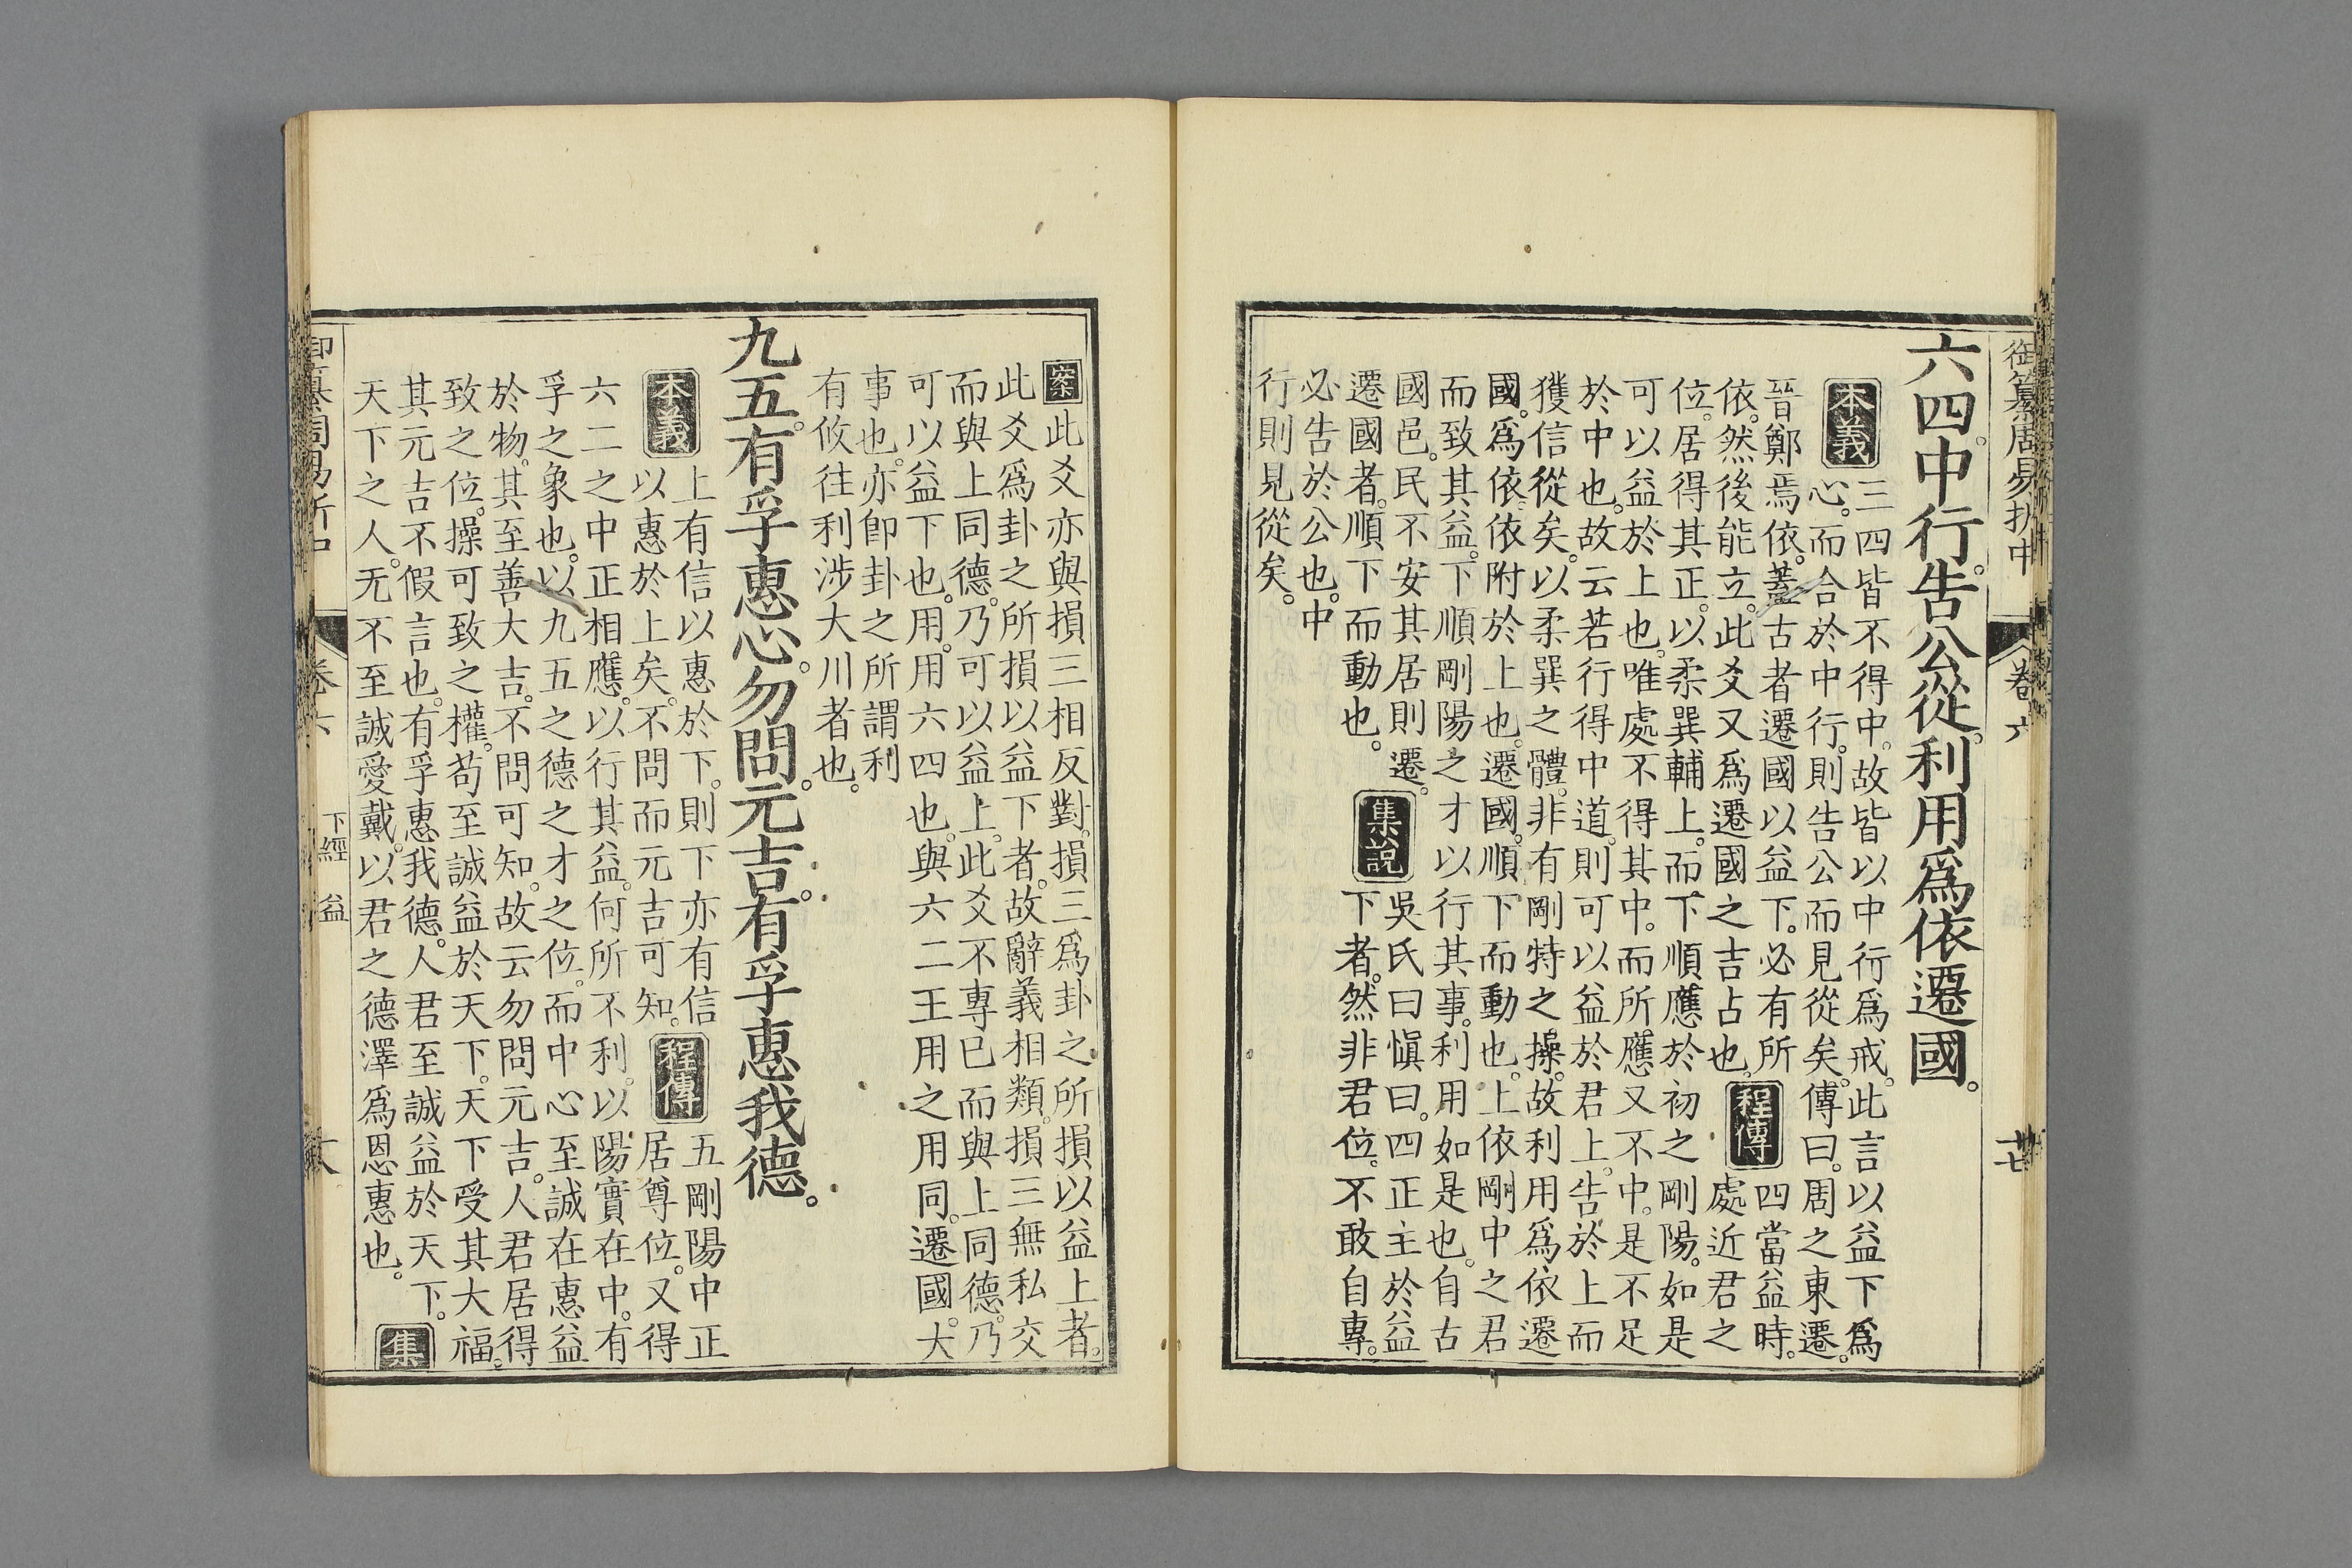 御纂周易折中 卷六 廿七
六四。中行。告公從。利用爲依遷國。
本義
三四皆不得中。故皆以中行爲戒。此言以益下爲
心。而合於中行。則告公而見從矣。傳曰。周之東遷。
晉鄭焉依。蓋古者遷國以益下。必有所
依。然後能立。此爻又爲遷國之吉占也。
程傳
四當益時。
處近君之
位。居得其正。以柔巽輔上。而下順應於初之剛陽。如是
可以益於上也。唯處不得其中。而所應又不中。是不足
於中也。故云若行得中道。則可以益於君上。告於上而
獲信從矣。以柔巽之體。非有剛特之操。故利用爲依遷
國。爲依。依附於上也。遷國。順下而動也。上依剛中之君
而致其益。下順剛陽之才以行其事。利用如是也。自古
國邑。民不安其居則遷。
遷國者。順下而動也。
集說
吳氏曰愼曰。四正主於益
下者。然非君位。不敢自專。
必告於公也。中
行則見從矣。
案 此爻亦與損三相反對。損三爲卦之所損以益上者。
此爻爲卦之所損以益下者。故辭義相類。損三無私交
而與上同德。乃可以益上。此爻不專已而與上同德。乃
可以益下也。用。用六四也。與六二王用之用同。遷國。大
事也。亦卽卦之所謂利
有攸往利涉大川者也。
九五。有孚惠心。勿問。元吉。有孚惠我德。
本義
上有信以惠於下。則下亦有信
以惠於上矣。不問而元吉可知。
程傳
五剛陽中正
居尊位。又得
六二之中正相應。以行其益。何所不利。以陽實在中。有
孚之象也。以九五之德之才之位。而中心至誠在惠益
於物。其至善大吉。不問可知。故云勿問元吉。人君居得
致之位。操可致之權。苟至誠益於天下。天下受其大福。
其元吉不假言也。有孚惠我德。人君至誠益於天下。
天下之人。无不至誠愛戴。以君之德澤爲恩惠也。
集
卷六 下經 益